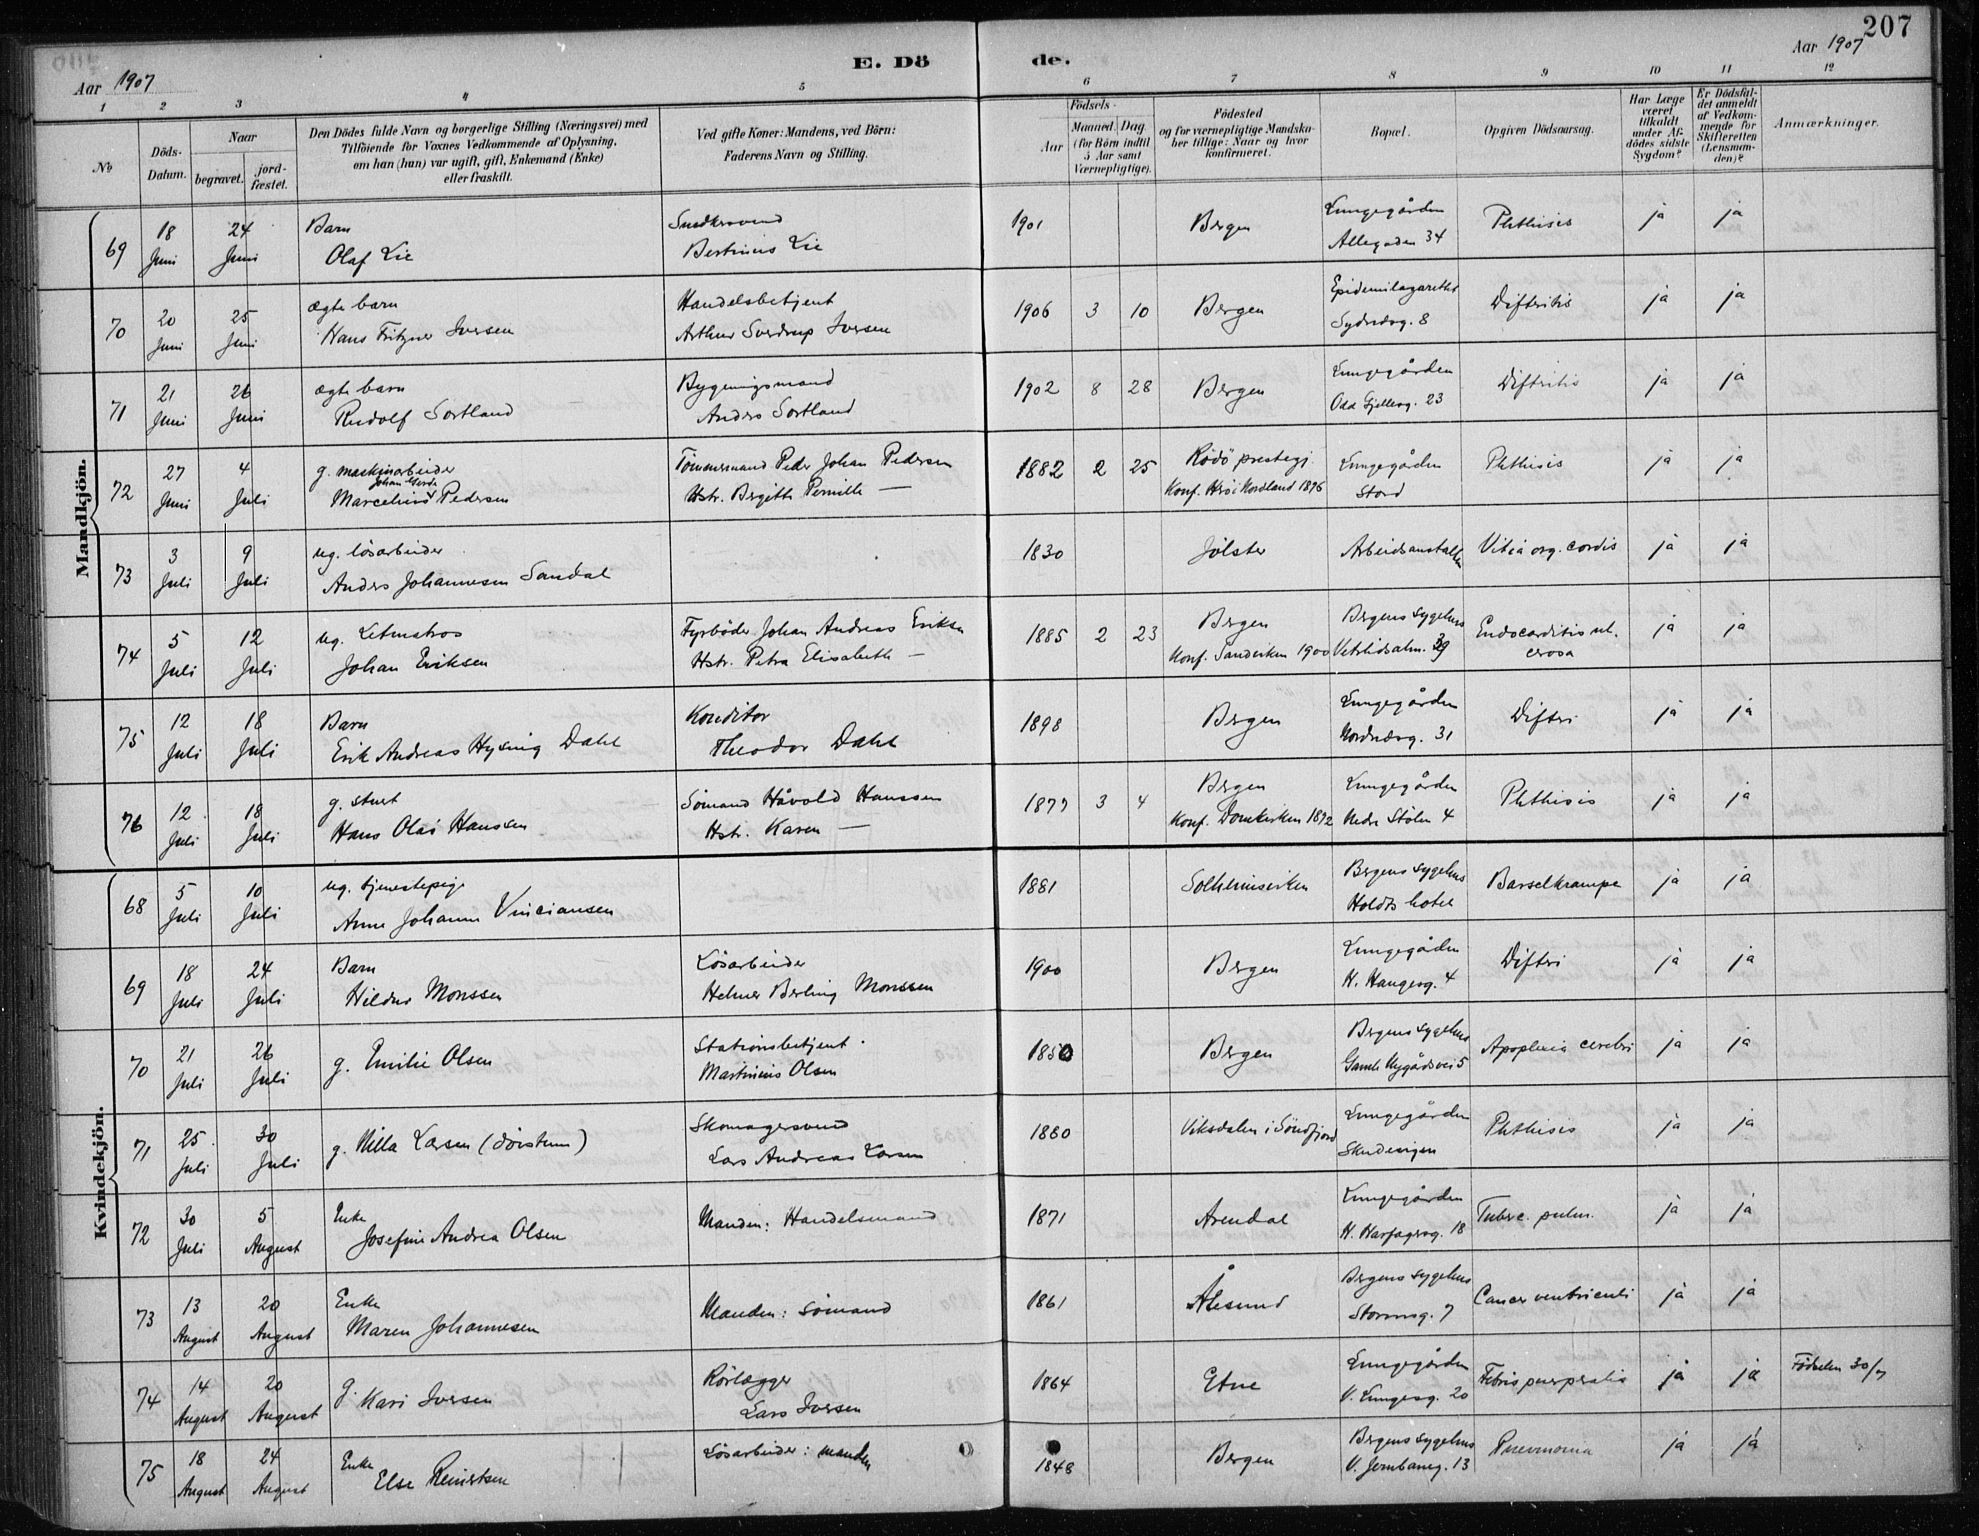 207
Aar 1907
E. Dö
de.
Aar 1907
1 2 3 4 5 6 7 8 9 10 11 12
No
Döds-Datum.
Naar
begravet.
jord-fæstet.
Den Dödes fulde Navn og borgerlige Stilling (Næringsvei) med
Tilföiende for Voxnes Vedkommende af Oplysning,
om han (hun) var ugift, gift, Enkemand (Enke)
eller fraskilt.
Ved gifte Koner: Mandens, ved Börn:
Faderens Navn og Stilling.
Födsels-
Aar
Maaned. Dag.
(for Börn indtil
5 Aar samt
Værnepligtige).
Födested
og for værnepligtige Mandska-
ber tillige: Naar og hvor
konfirmeret.
Bopæl.
Opgiven Dödsaarsag.
Har Læge
været
tilkaldt
under Af-
dödes sidste
Sygdom?
Er Dödsfal-
det anmeldt
af Vedkom-
mende for
Skifteretten
(Lensman-
den)?
Anmærkninger.
Mandkjön.
69 18 Juni 24 Juni Barn Olaf Lie Snedkersvend Bertinius Lie 1901 Bergen Lungegården Allegaden 34 Phthisis ja ja
70 20 Juni 25 Juni ægte barn Hans Fritzner Iversen Handelsbetjent Arthur Sverdrup Iversen 1906 3 10 Bergen Epidemilazarethet Sydnæsg. 8 Difteritis ja ja
71 21 Juni 26 Juni ægte barn Rudolf Sortland Bygningsmand Anders Sortland 1902 8 28 Bergen Lungegården Odd Gjellesg. 23 Difteritis ja ja
72 27 Juni 4 Juli g. maskinarbeider Johan Marcelius Pedersen Tömmermand Peder Johan Pedersen Hstr. Birgitte Pernille — 1882 2 25 Rödö prestegj. Konf. i Nordland 1896 Lungegården Stord Phthisis ja ja
73 3 Juli 9 Juli ug. lösarbeider Anders Johannesen Sandal 1830 Jölster Arbeidsanstalten Vitia org. cordis ja ja
74 5 Juli 12 Juli ug. Letmatros Johan Eriksen Fyrböder Johan Andreas Eriksen Hstr. Petra Elisabeth — 1885 2 23 Bergen Konf. Sandviken 1900 Bergens sygehus Vetrlidsalm. 29 Endocarditis ulcerosa ja ja
75 12 Juli 18 Juli Barn Erik Andreas Hysing Dahl Konditor Theodor Dahl 1898 Bergen Lungegården Nordnæsg. 31 Difteri ja ja
76 12 Juli 18 Juli g. stuert Hans Olai Hanssen Sömand Håvold Hanssen Hstr. Karen — 1877 3 4 Bergen Konf. Domkirken 1892 Lungegården Nedre Stölen 4 Phthisis ja ja
Kvindekjön.
68 5 Juli 10 Juli ug. tjenestepige Anne Johanne Vinciansen 1881 Solheimsviken Bergens sygehus Holdts hotel Barselkrampe ja ja
69 18 Juli 24 Juli Barn Hildur Monssen Lösarbeider Helmer Berling Monssen 1900 Bergen Lungegården H. Haugesg. 4 Difteri ja ja
70 21 Juli 26 Juli g. Emilie Olsen Stationsbetjent Martinius Olsen 1850 Bergen Bergens sygehus Gamle Nygårdsvei 5 Apoplexia cerebri ja ja
71 25 Juli 30 Juli g. Milla Larsen Skomagersvend Lars Andreas Larsen 1880 Viksdalen i Söndfjord Lungegården Skudevigen Phthisis ja ja
72 30 Juli 5 August Enke Josefine Andrea Olsen Manden: Handelsmand 1871 Arendal Lungegården H. Harfagersg. 18 Tuberc. pulm. ja ja
73 13 August 20 August Enke Maren Johannesen Manden: sömand 1861 Ålesund Bergens sygehus Stormsg. 7 Cancer ventriculi ja ja
74 14 August 20 August g. Kari Iversen Rörlægger Lars Iversen 1864 Etne Lungegården V. Lungesg. 20 Febris puerperalis ja ja Födselen 30/7
75 18 August 24 August Enke Else Reinertsen Lösarbeider: manden 1848 Bergen Bergens sygehus V. Jernbaneg. 13 Pneumonia ja ja